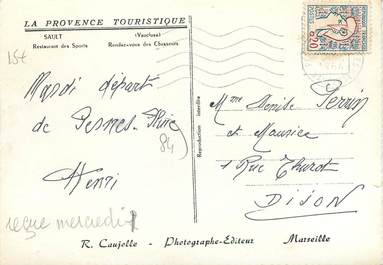 LA PROVENCE TOURISTIQUE
SAULT (Vaucluse)
Restaurant des Sports Rendez-vous des Chasseurs
15€
0,20
Reproduction interdite
Mardi départ
de Pesmes
84
Henri
reçue mercredi
Mme Denise Perrin
et Maurice
1 Rue Thurot
DIJON
R. Caujolle - Photographe-Editeur Marseille